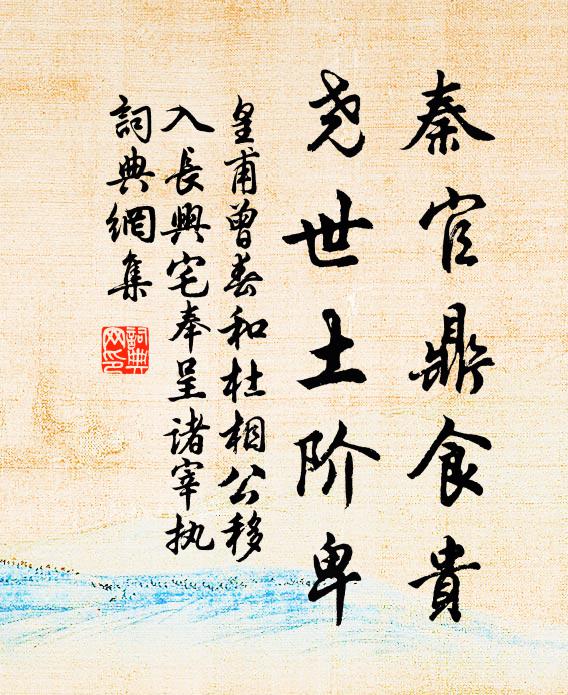 秦官鼎食貴
尧世土阶卑
皇甫曾春和杜相公移
入長興宅奉呈诸宰执
詞典網集
詞典
网印